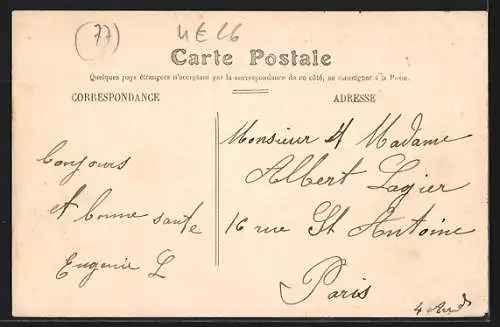 77 4E26
Carte Postale
Quelques pays étrangers n'acceptent pas la correspondance de ce côté, se renseigner à la Poste.
CORRESPONDANCE
ADRESSE
bonjours
et bonne sante
Eugenie L
Monsieur et Madame
Albert Lagier
16 rue St Antoine
Paris